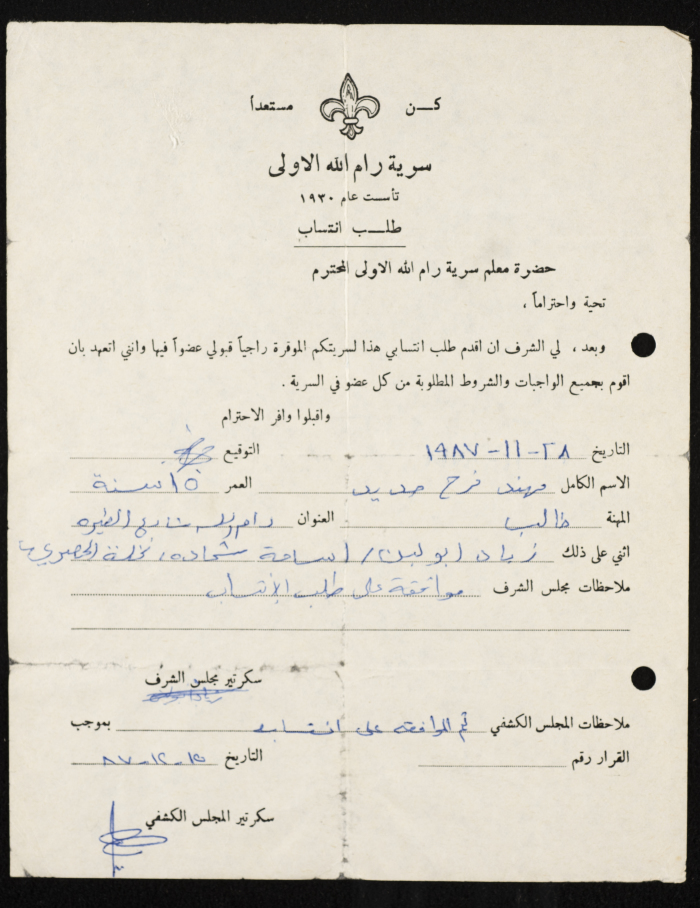 كـــن مستعداً
سرية رام الله الاولى
تأسست عام ١٩٣٠
طلـــب انتساب
حضرة معلم سرية رام الله الاولى المحترم
تحية واحتراماً ،
وبعد ، لي الشرف ان اقدم طلب انتسابي هذا لسريتكم الموفرة راجياً قبولي عضواً فيها وانني اتعهد بان
اقوم بجميع الواجبات والشروط المطلوبة من كل عضو في السرية .
واقبلوا وافر الاحترام
التاريخ ٢٨-١١-١٩٨٧ التوقيع
الاسم الكامل مهند فرح حديد العمر ١٥ سنة
المهنة طالب العنوان رام الله شارع الطيره
اثني على ذلك زياد ابو لبن / اسامة شحاده ، نخلة الحصري
ملاحظات مجلس الشرف موافقة على طلب الانتساب
سكرتير مجلس الشرف
ملاحظات المجلس الكشفي تم الموافقه على انتسابه بموجب
القرار رقم التاريخ ١٥-١٢-٨٧
سكرتير المجلس الكشفي